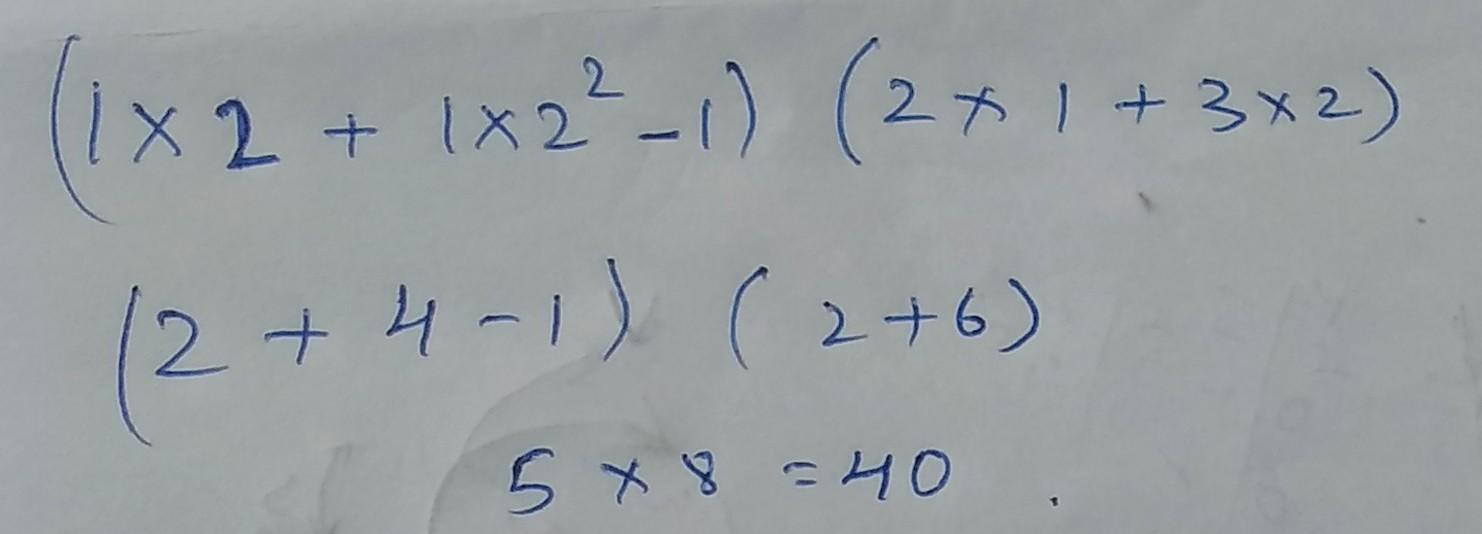 (1 × 2 + 1 × 2² - 1) (2 × 1 + 3 × 2)
(2 + 4 - 1) (2 + 6)
5 × 8 = 40 .